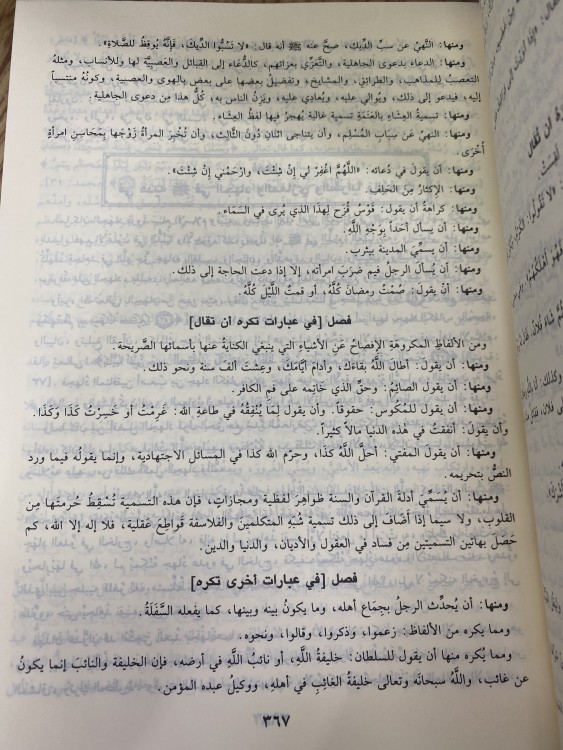 ومنها: النَّهيُ عن سبِّ الدِّيكِ، صحَّ عنه ﷺ أنه قال: «لا تَسُبُّوا الدِّيكَ، فَإِنَّهُ يُوقِظُ لِلصَّلاةِ».
ومنها: الدعاء بدعوى الجاهلية، والتَّعَزِّي بعزائهم، كالدُّعاء إلى القبائل والعَصَبِيَّة لها وللأنساب، ومثلُه
التعصبُ للمذاهب، والطرائق، والمشايخ، وتفضيلُ بعضها على بعض بالهوى والعصبية، وكونُه منتسباً
إليه، فيدعو إلى ذلك، ويُوالي عليه، ويُعادي عليه، ويَزِنُ الناس به، كُلُّ هذا مِن دعوى الجاهلية.
ومنها: تسميةُ العِشاءِ بالعَتَمَةِ تسمية غالبة يُهجرُ فيها لفظُ العِشاء.
ومنها: النهيُ عن سِبَابِ المُسْلِمِ، وأن يتناجى اثنَان دُونَ الثَّالِثِ، وأن تُخْبِرَ المرأةُ زَوْجَها بِمَحَاسِنِ امرأةٍ
أُخْرَى.
ومنها: أن يقولَ في دُعائه: «اللَّهُمَّ اغْفِرْ لي إنْ شِئْتَ، وارْحَمْني إنْ شِئْتَ».
ومنها: الإكثارُ مِنَ الحَلِفِ.
ومنها: كراهةُ أن يقول: قَوْسُ قُزَح لِهذا الذي يُرى في السَّماء.
ومنها: أن يسألَ أحَداً بِوَجْهِ اللَّهِ.
ومنها: أن يسمِّيَ المدينة بيثرب.
ومنها: أن يُسألَ الرجلُ فيم ضرَبَ امرأته، إلا إذا دعت الحاجة إلى ذلك.
ومنها: أنْ يقولَ: صُمْتُ رمضانَ كُلَّهُ، أو قمتُ اللَّيْلَ كُلَّهُ.
فصل [في عبارات تكره أن تقال]
ومن الألفاظِ المكروهَةِ الإفصاحُ عَنِ الأشياءِ التي ينبغي الكنايةُ عنها بأسمائها الصَّريحة.
ومنها: أن يقول: أطالَ اللَّهُ بقاءَكَ، وأدامَ أيَّامَكَ، وعِشتَ ألفَ سنة ونحو ذلك.
ومنها: أن يقول الصائِمُ: وحقِّ الذي خَاتِمُه على فمِ الكافر.
ومنها: أن يقول للمُكُوسِ: حقوقاً. وأن يقول لِمَا يُنْفِقُهُ في طاعةِ الله: غَرِمْتُ أو خَسِرْتُ كَذَا وَكَذَا.
وأن يقولَ: أنفقتُ في هذه الدنيا مالاً كثيراً.
ومنها: أن يقولَ المفتي: أحلَّ اللَّهُ كذَا، وحرَّم الله كذا في المسائل الاجتهادية، وإنما يقولُه فيما ورد
النصُّ بتحريمه.
ومنها: أن يُسمِّيَ أدلةَ القرآنِ والسنة ظواهِرَ لفظية ومجازاتٍ، فإن هذه التسمية تُسْقِطُ حُرمتَها مِن
القلوب، ولا سيما إذا أضَافَ إلى ذلك تسميةَ شُبَهِ المتكلمينَ والفلاسفة قَواطِعَ عَقلية، فلا إله إلا الله، كم
حَصَلَ بهاتين التسميتين مِن فسادٍ في العقول والأديان، والدنيا والدين.
فصل [في عبارات أخرى تكره]
ومنها: أن يُحدِّثَ الرجلُ بجِمَاع أهله، وما يكونُ بينه وبينها، كما يفعله السَّفَلَةُ.
ومما يكره من الألفاظ: زعموا، وَذكروا، وقالوا، ونحوه.
ومما يُكره منها أن يقول للسلطان: خليفةُ اللَّهِ، أو نائبُ اللَّهِ في أرضه، فإن الخليفة والنائبَ إنما يكونُ
عن غائب، واللَّهُ سبحانَه وتعالى خليفةُ الغائِبِ في أهلِهِ، ووكيلُ عبدِه المؤمن.
٣٦٧